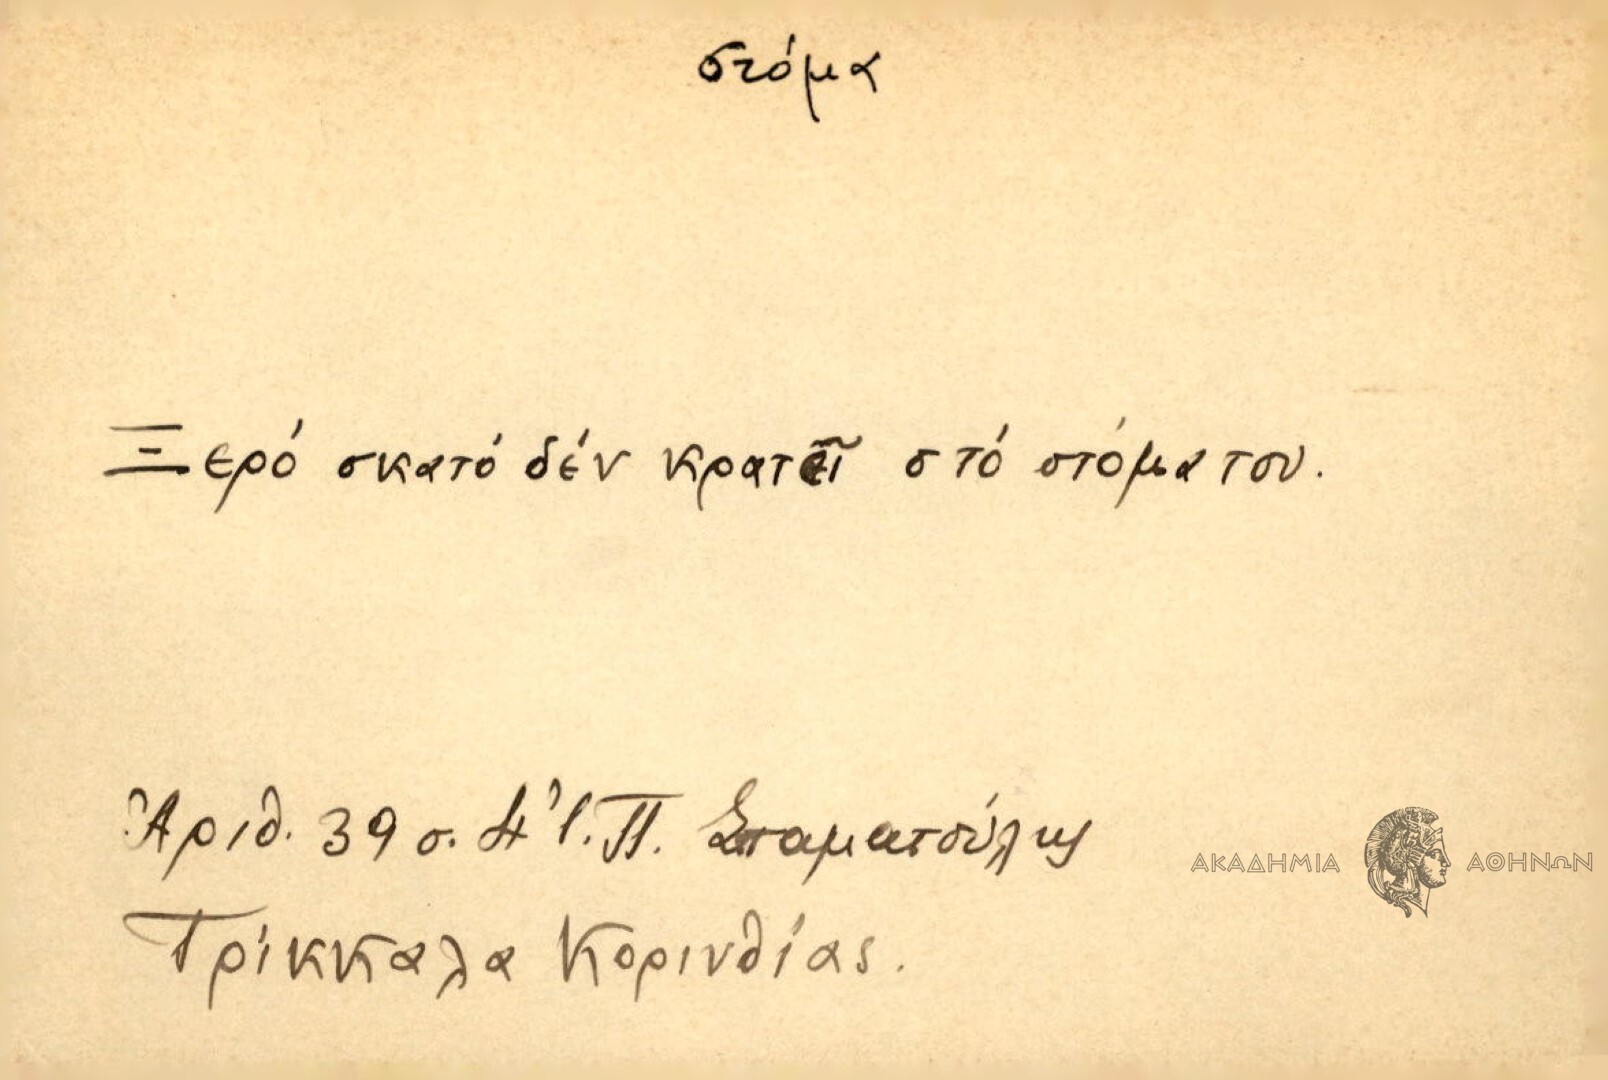 στόμα
Ξερό σκατό δέν κρατεῖ στό στόμα του.
Ἀριθ. 39 σ. 4 Ἰ. Π. Σταματούλης
Τρίκκαλα Κορινθίας.
ΑΚΑΔΗΜΙΑ ΑΘΗΝΩΝ